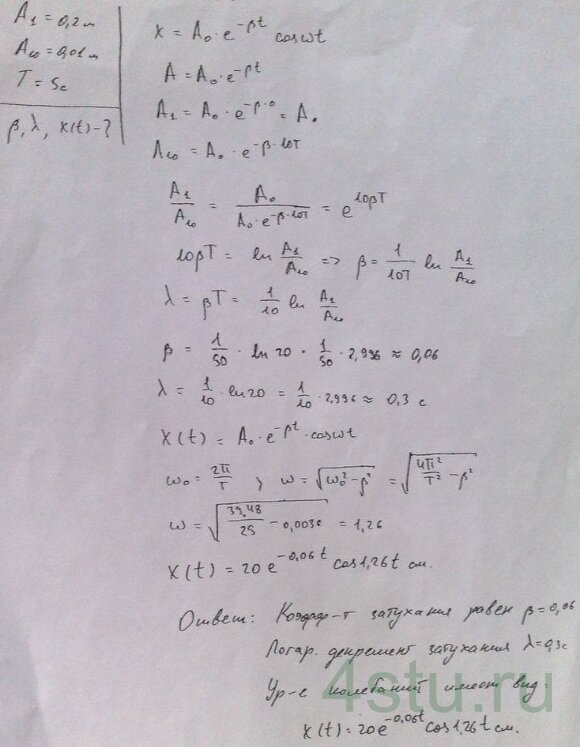 A₁ = 0,2 м
A₁₀ = 0,01 м
T = 5c
β, λ, x(t) - ?
x = A₀ · e^(-βt) cos ωt
A = A₀ · e^(-βt)
A₁ = A₀ · e^(-β·0) = A₀
A₁₀ = A₀ · e^(-β·10T)
A₁/A₁₀ = A₀/(A₀ · e^(-β·10T)) = e^(10βT)
10βT = ln A₁/A₁₀ => β = 1/(10T) ln A₁/A₁₀
λ = βT = 1/10 ln A₁/A₁₀
β = 1/50 · ln 20 = 1/50 · 2,996 ≈ 0,06
λ = 1/10 · ln 20 = 1/10 · 2,996 ≈ 0,3 c
x(t) = A₀ · e^(-βt) · cos ωt
ω₀ = 2π/T ; ω = √(ω₀² - β²) = √(4π²/T² - β²)
ω = √(39,48/25 - 0,0036) = 1,26
x(t) = 20 e^(-0,06t) cos 1,26t см.
Ответ: Коэфф-т затухания равен β = 0,06
Логар. декремент затухания λ = 0,3c
Ур-е колебаний имеет вид
x(t) = 20e^(-0,06t) cos 1,26t см.
4stu.ru